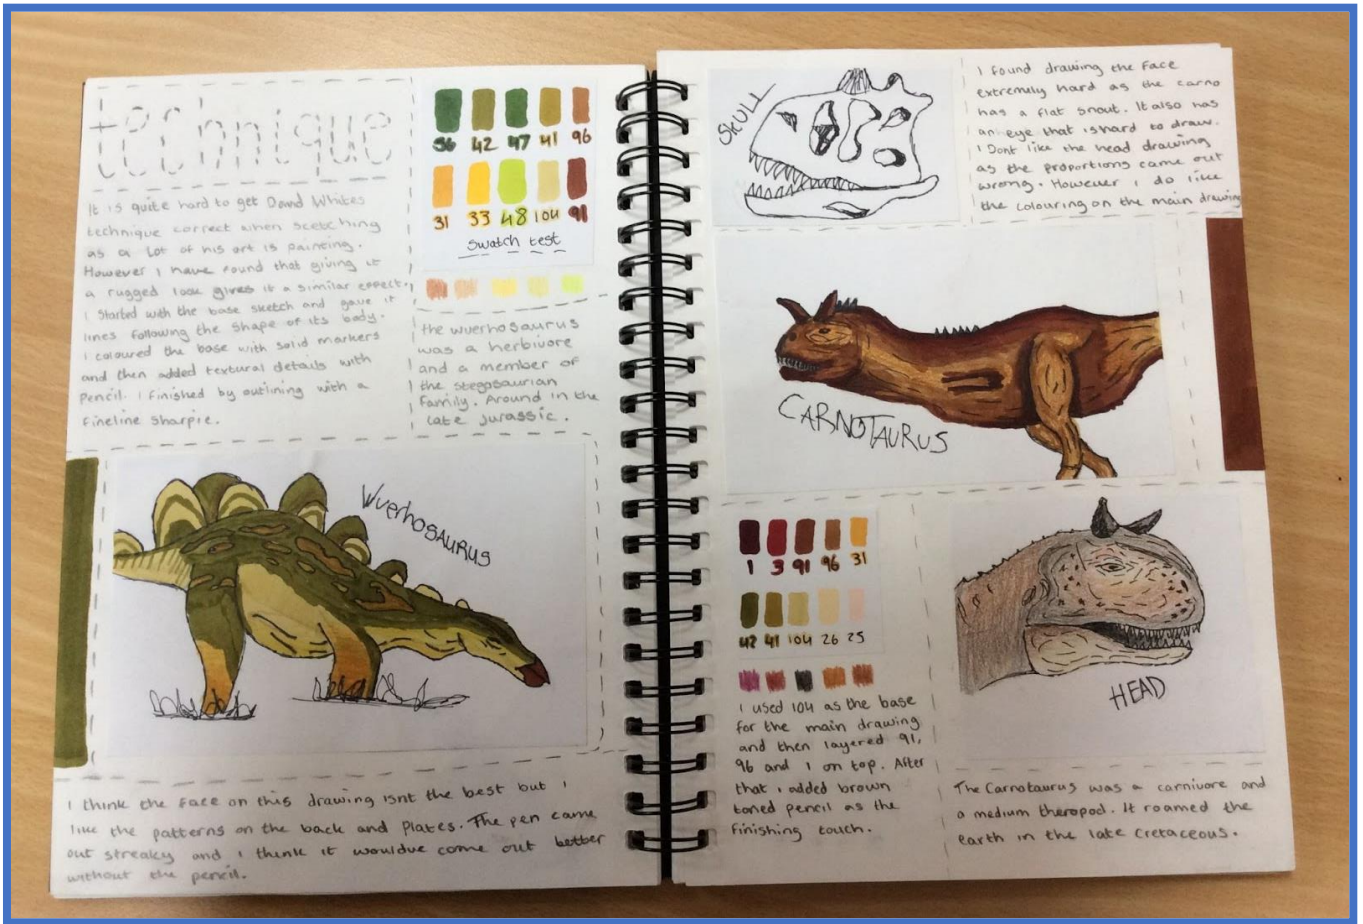 technique
It is quite hard to get David Whites
technique correct when scetching
as a lot of his art is painting.
However I have found that giving it
a rugged look gives it a similar effect.
I started with the base sketch and gave it
lines following the shape of its body.
I coloured the base with solid markers
and then added textural details with
pencil. I finished by outlining with a
fineline sharpie.
56 42 47 41 96
31 33 48 104 91
swatch test
the wuerhosaurus
was a herbivore
and a member of
the stegosaurian
family. Around in the
late jurassic.
WuerhoSAURUS
I think the face on this drawing isnt the best but I
like the patterns on the back and plates. The pen came
out streaky and I think it wouldve come out better
without the pencil.
SKULL
I found drawing the face
extremely hard as the carno
has a flat snout. It also has
an eye that is hard to draw.
I Dont like the head drawing
as the proportions came out
wrong. However I do like
the colouring on the main drawing
CARNOTAURUS
1 3 91 96 31
42 41 104 26 25
I used 104 as the base
for the main drawing
and then layered 91,
96 and 1 on top. After
that I added brown
toned pencil as the
finishing touch.
HEAD
The Carnotaurus was a carnivore and
a medium theropod. It roamed the
earth in the late cretaceous.